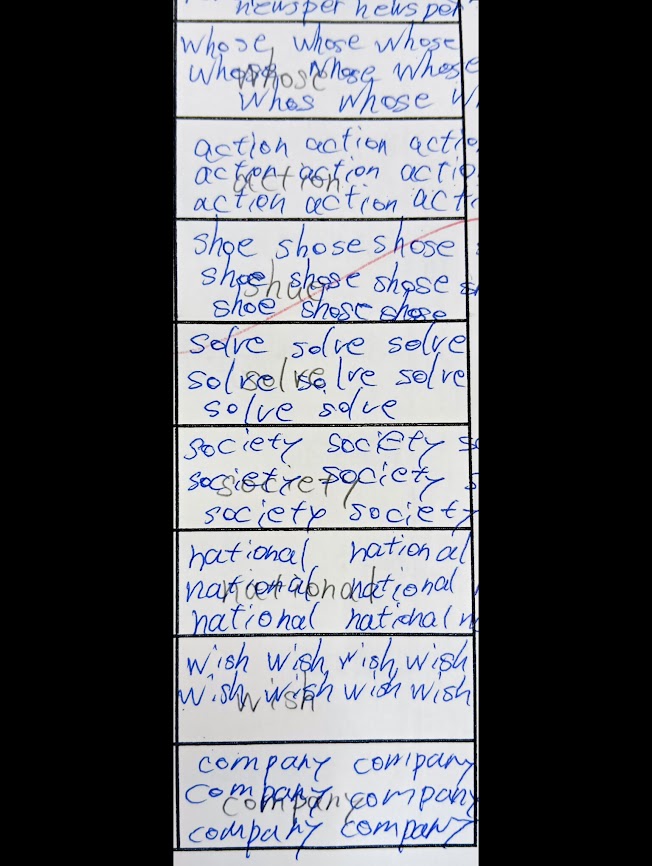 newsper newsper
whose, whose whose
whose whose whose whose
whos whose w
action action actio
action action action actio
action action acti
shoe shose shose s
shoe shae shose shose s
shoe shose shose
solve solve solve
solve solve solve solve
solve solve
society society so
society society society s
society society
national national
national national national n
national national n
wish wish, wish, wish
wish wish wish wish wish
company company
company company company
company company